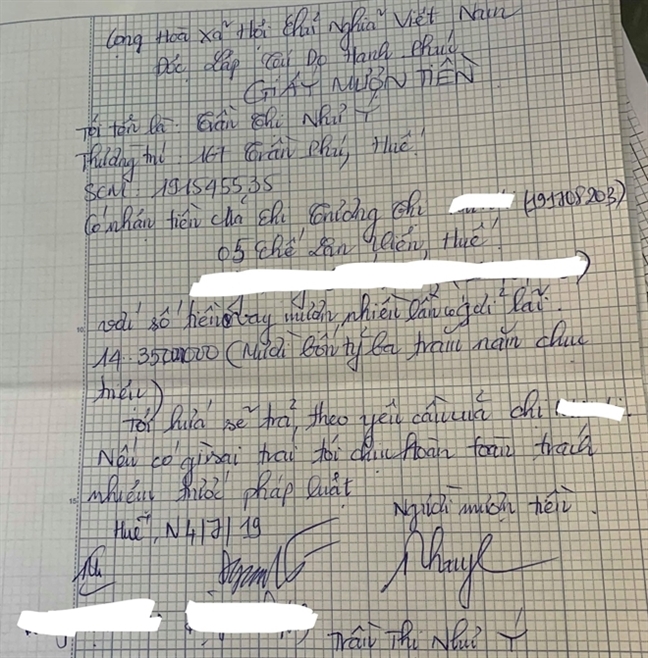 Cộng Hoà Xã Hội Chủ Nghĩa Việt Nam
Độc Lập Tự Do Hạnh Phúc
GIẤY MƯỢN TIỀN
Tôi tên là: Trần Thị Như Ý
Thường trú: 167 Trần Phú, Huế
SCM: 191545535
Có nhận tiền của chị Trương Thị (191708203)
05 Chế Lan Viên, Huế
với số tiền vay mượn, nhiều lần gởi lãi.
14.350000000 (Mười bốn tỷ ba trăm năm chục
triệu)
Tôi hứa sẽ trả, theo yêu cầu của chị
Nếu có gì sai trái tôi chịu hoàn toàn trách
nhiệm trước pháp luật
Huế, N4/7/19 Người mượn tiền.
Trần Thị Như Ý